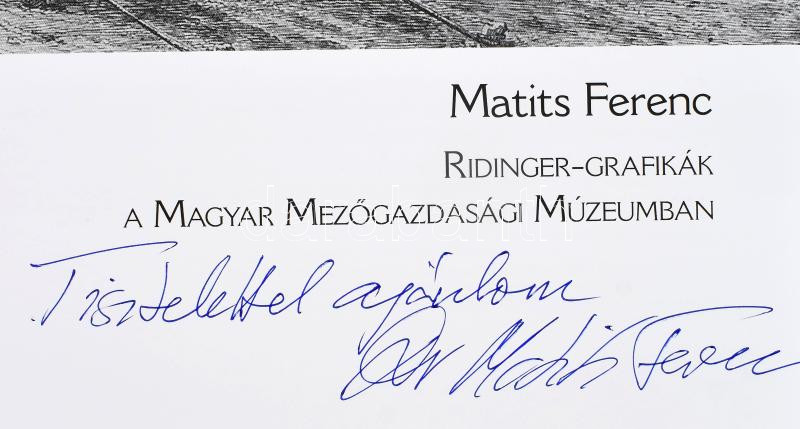 Matits Ferenc
RIDINGER-GRAFIKÁK
A MAGYAR MEZŐGAZDASÁGI MÚZEUMBAN
darabanth
Tisztelettel ajánlom
Dr Matits Ferenc